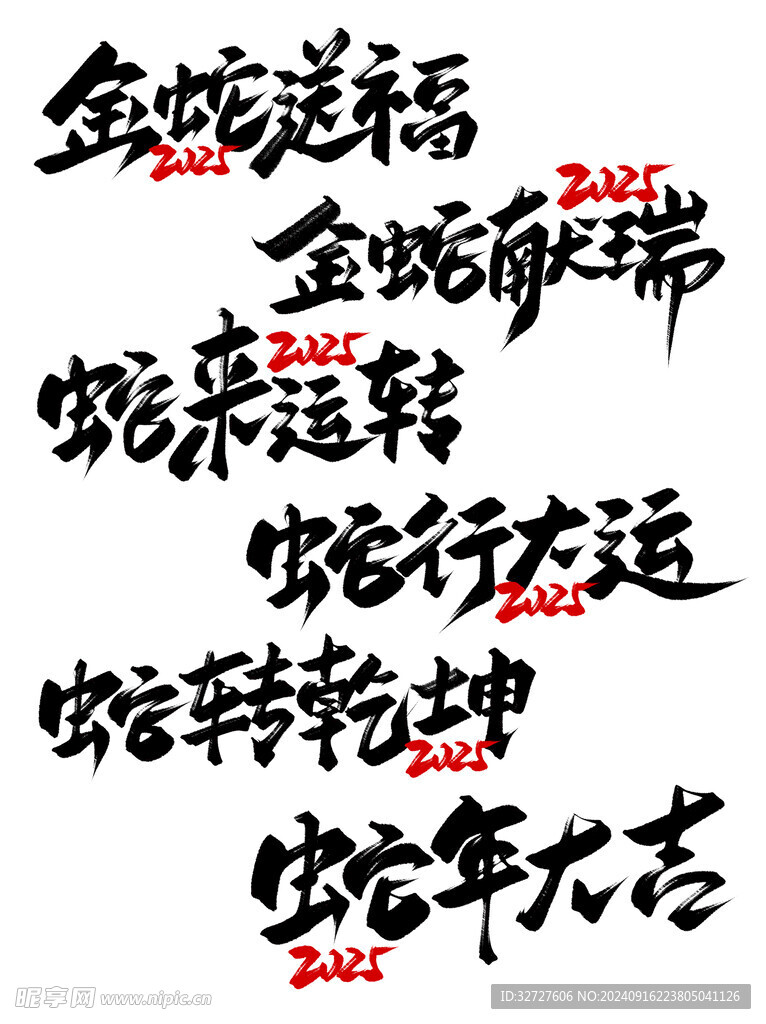 金蛇送福
2025
2025
金蛇献瑞
2025
蛇来运转
蛇行大运
2025
蛇转乾坤
2025
蛇年大吉
2025
昵享网 www.nipic.cn
ID:32727606 NO:20240916223805041126